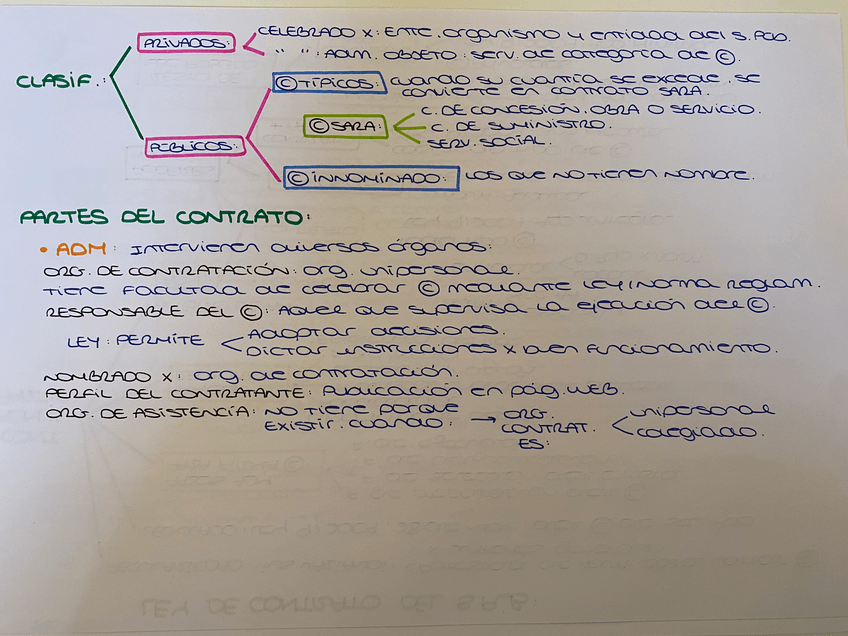 CLASIF.:
PRIVADOS:
CELEBRADO X: ENTE, organismo y entidad del S. PÚD.
" " : ADM. OBJETO: SERV. de categoría de ©.
PÚBLICOS:
© TÍPICOS: cuando su cuantía se excede, se
convierte en contrato SARA.
© SARA:
C. DE CONCESIÓN, OBRA O SERVICIO.
C. DE SUMINISTRO.
SERV. SOCIAL.
© INNOMINADO: LOS QUE NO TIENEN NOMBRE.
PARTES DEL CONTRATO:
• ADM: Intervienen diversos órganos:
ORG. DE CONTRATACIÓN: org. unipersonal.
TIENE FACULTAD de celebrar © mediante LEY/NORMA REGLAM.
RESPONSABLE DEL ©: Aquel que supervisa LA ejecución del ©.
LEY: PERMITE
Adoptar decisiones.
Dictar instrucciones x buen funcionamiento.
NOMBRADO X: org. de contratación.
PERFIL DEL CONTRATANTE: Publicación en pág. WEB.
ORG. DE ASISTENCIA: NO TIENE PORQUE
EXISTIR. CUANDO: → ORG.
CONTRAT.
ES:
unipersonal
colegiado.